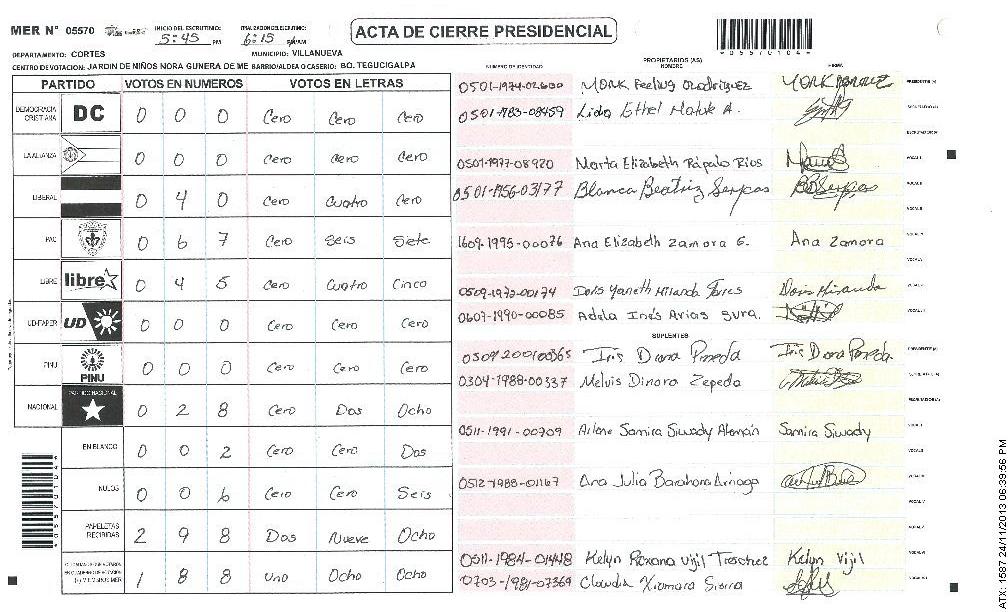 MER N° 05570
INICIO DEL ESCRUTINIO: 5:45 PM
6:15 PM
ACTA DE CIERRE PRESIDENCIAL
05570104
DEPARTAMENTO: CORTES MUNICIPIO: VILLANUEVA
CENTRO DE VOTACION: JARDIN DE NIÑOS NORA GUNERA DE ME BARRIO/ALDEA O CASERIO: BO. TEGUCIGALPA
PARTIDO VOTOS EN NUMEROS VOTOS EN LETRAS
DEMOCRACIA CRISTIANA DC 0 0 0 Cero Cero Cero
LA ALIANZA 0 0 0 Cero Cero Cero
LIBERAL 0 4 0 Cero Cuatro Cero
PAC 0 6 7 Cero Seis Siete
LIBRE libre 0 4 5 Cero Cuatro Cinco
UD-FAPER UD 0 0 0 Cero Cero Cero
PINU PINU 0 0 0 Cero Cero Cero
NACIONAL PARTIDO NACIONAL 0 2 8 Cero Dos Ocho
EN BLANCO 0 0 2 Cero Cero Dos
NULOS 0 0 6 Cero Cero Seis
PAPELETAS RECIBIDAS 2 9 8 Dos Nueve Ocho
1 8 8 Uno Ocho Ocho
PROPIETARIOS (AS)
NUMERO DE IDENTIDAD NOMBRE FIRMA
0501-1974-02600 MORK PRESIDENTE (A)
0501-1983-08459 Lidia Ethel Matute A.
0501-1977-08920 Marta Elizabeth Rápalo Rios VOCAL I
0501-1956-03177 Blanca Beatriz Serpas BBSerpas VOCAL II
1609-1995-00076 Ana Elizabeth Zamora G. Ana Zamora
0509-1972-00174 Doris Yaneth Miranda Torres Doris Miranda
0607-1990-00085 Adela Inés Arias Sura.
SUPLENTES
0509200100365 Iris Diana Pineda Iris Diana Pineda PRESIDENTE (A)
0304-1988-00337 Melvis Dinora Zepeda
0511-1991-00709 Arlene Samira Siwady Alemán Samira Siwady
0512-1988-01167 Ana Julia Barahona
0511-1984-01448 Kelyn Roxana Vijil Kelyn Vijil
0703-1981-07369 Claudia Xiomara Sierra
ATX: 1587 24/11/2013 06:39:56 PM